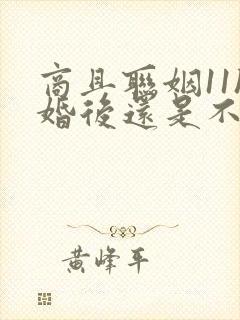 商且聯姻11
婚後還是不
黃峰平